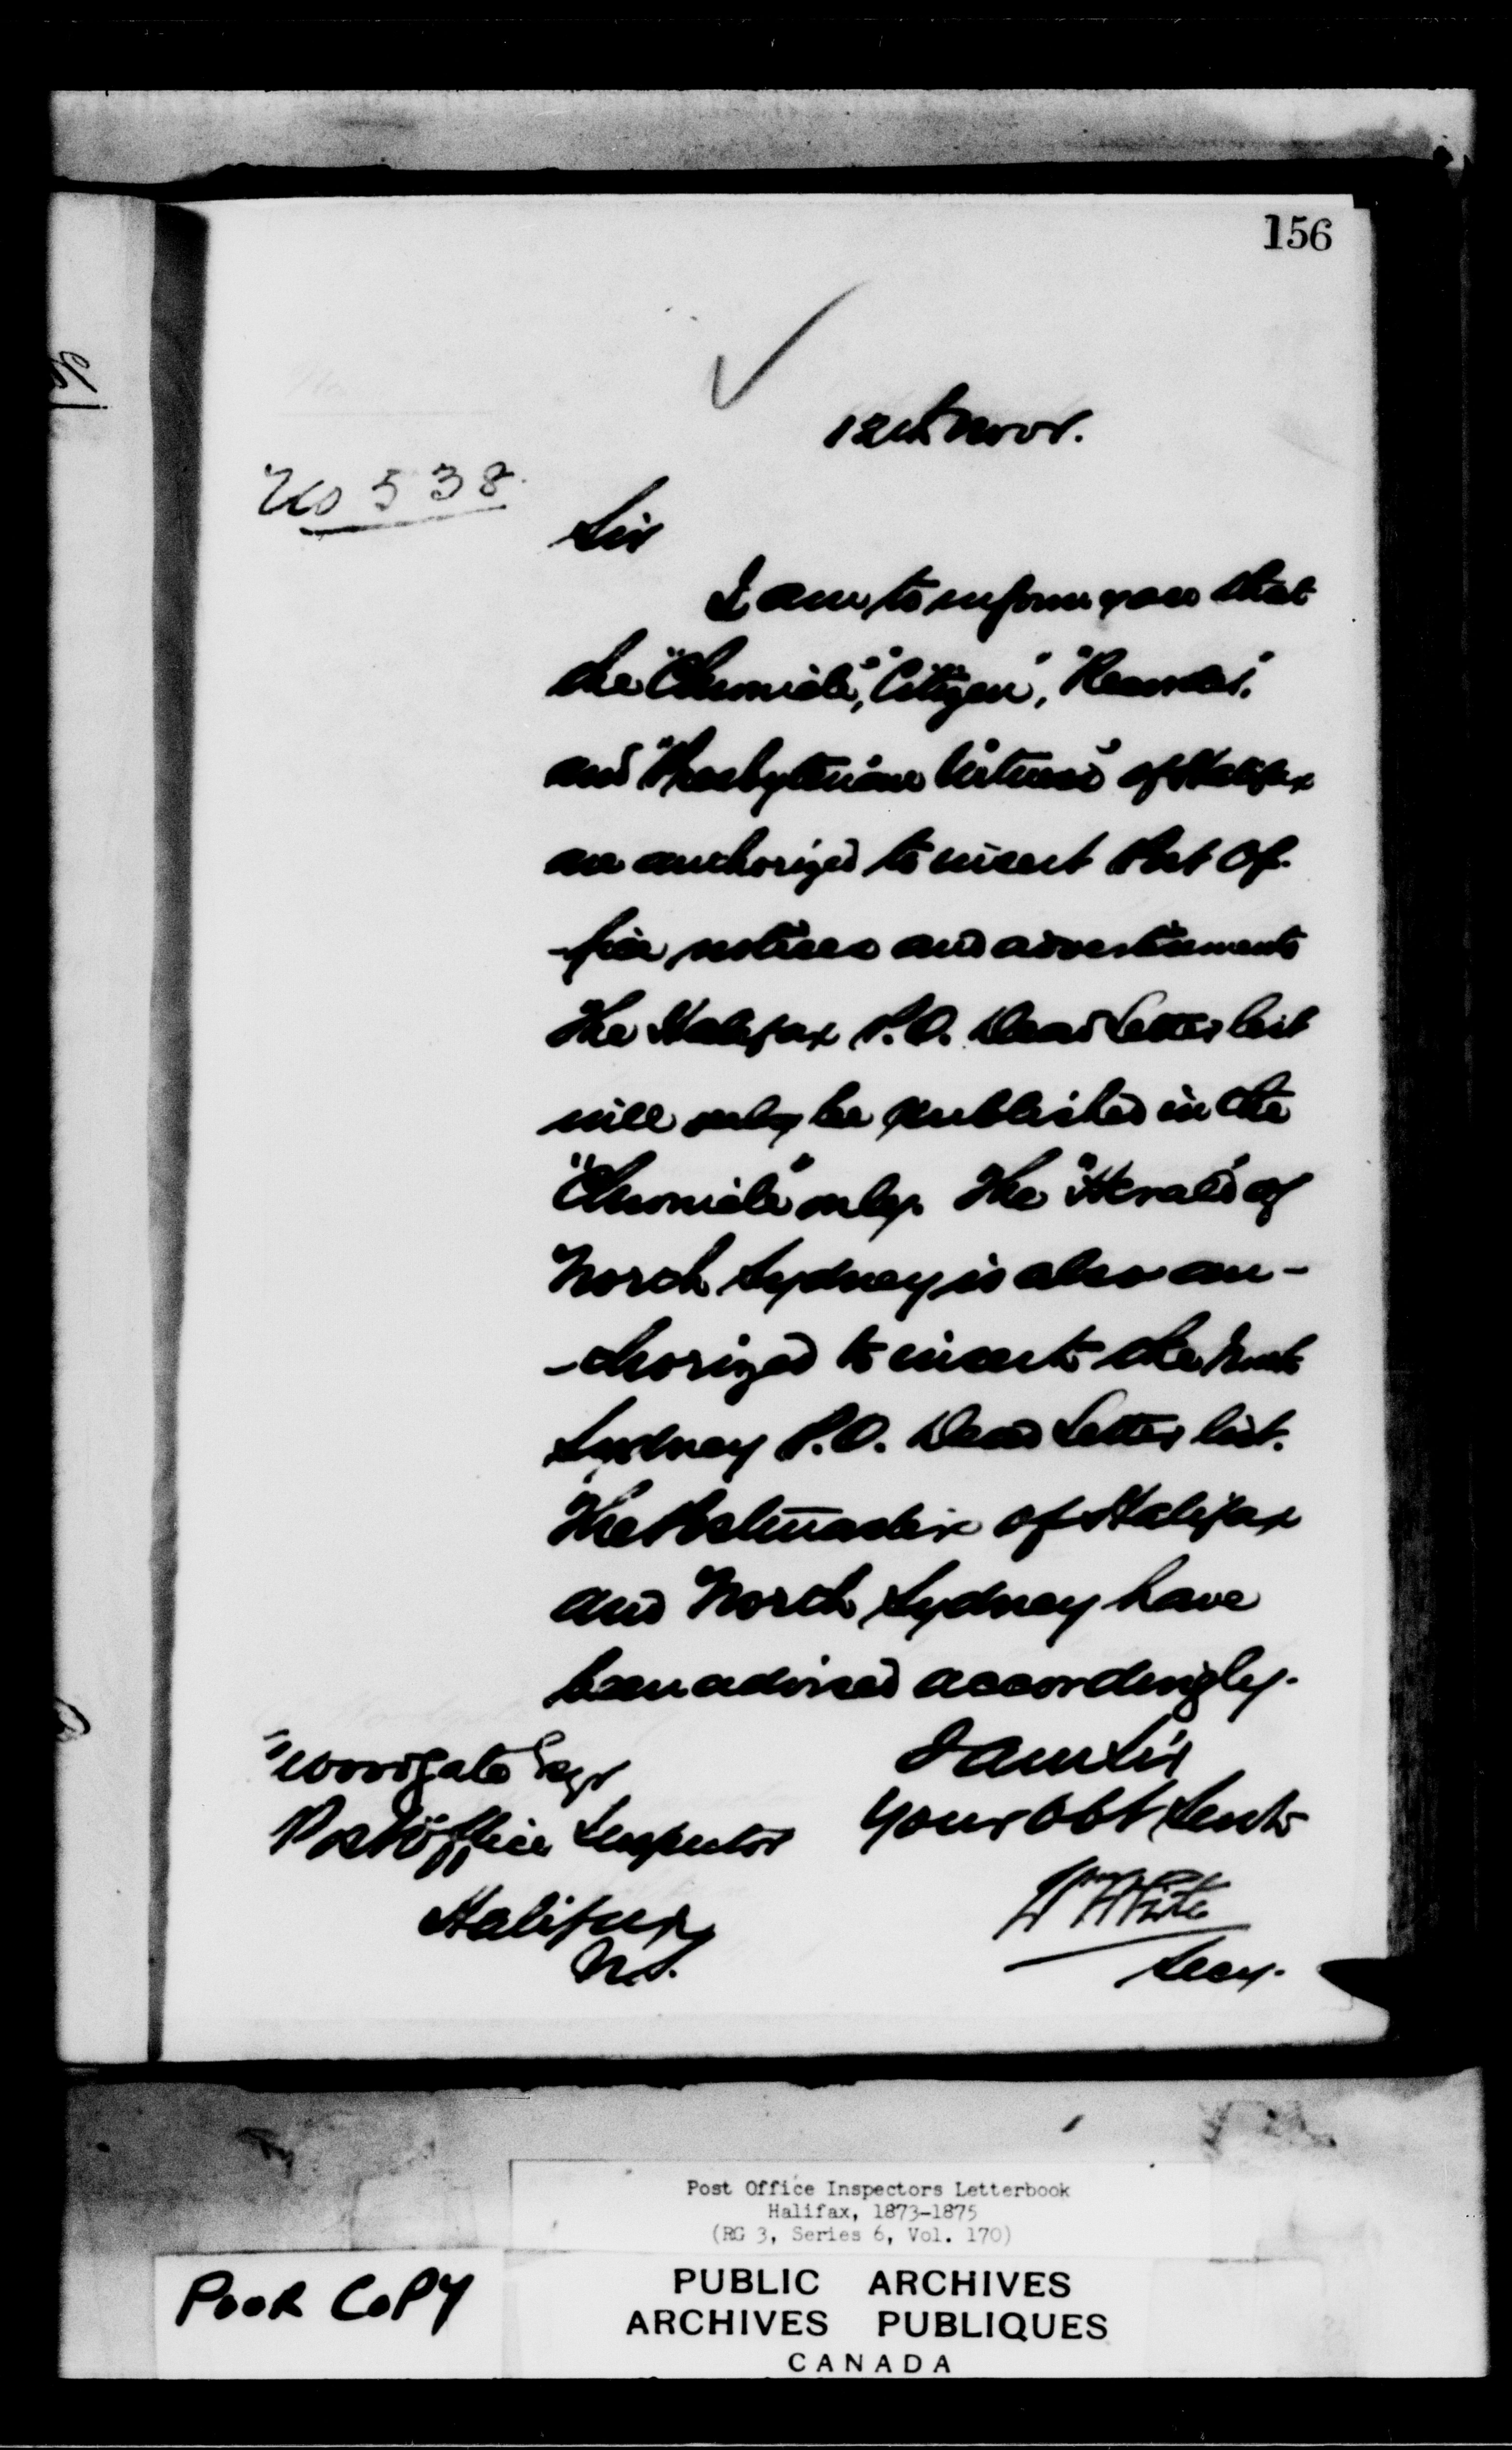 156
12th Novr.
No 538.
Sir
I am to inform you that
the "Chronicle", "Citizen", "Recorder",
and "Presbyterian Witness" of Halifax
are authorized to insert Post Of-
-fice notices and advertisements
The Halifax P.O. Dead Letter list
will only be published in the
"Chronicle" only. The "Herald" of
North Sydney is also au-
-thorized to insert the North
Sydney P.O. Dead Letter list.
The Postmasters of Halifax
and North Sydney have
been advised accordingly.
I am Sir
Your Obt Servt
Woodgate Esqr
Post Office Inspector
Halifax
N.S.
W White
Secy.
Post Office Inspectors Letterbook
Halifax, 1873-1875
(RG 3, Series 6, Vol. 170)
POOR COPY
PUBLIC ARCHIVES
ARCHIVES PUBLIQUES
CANADA